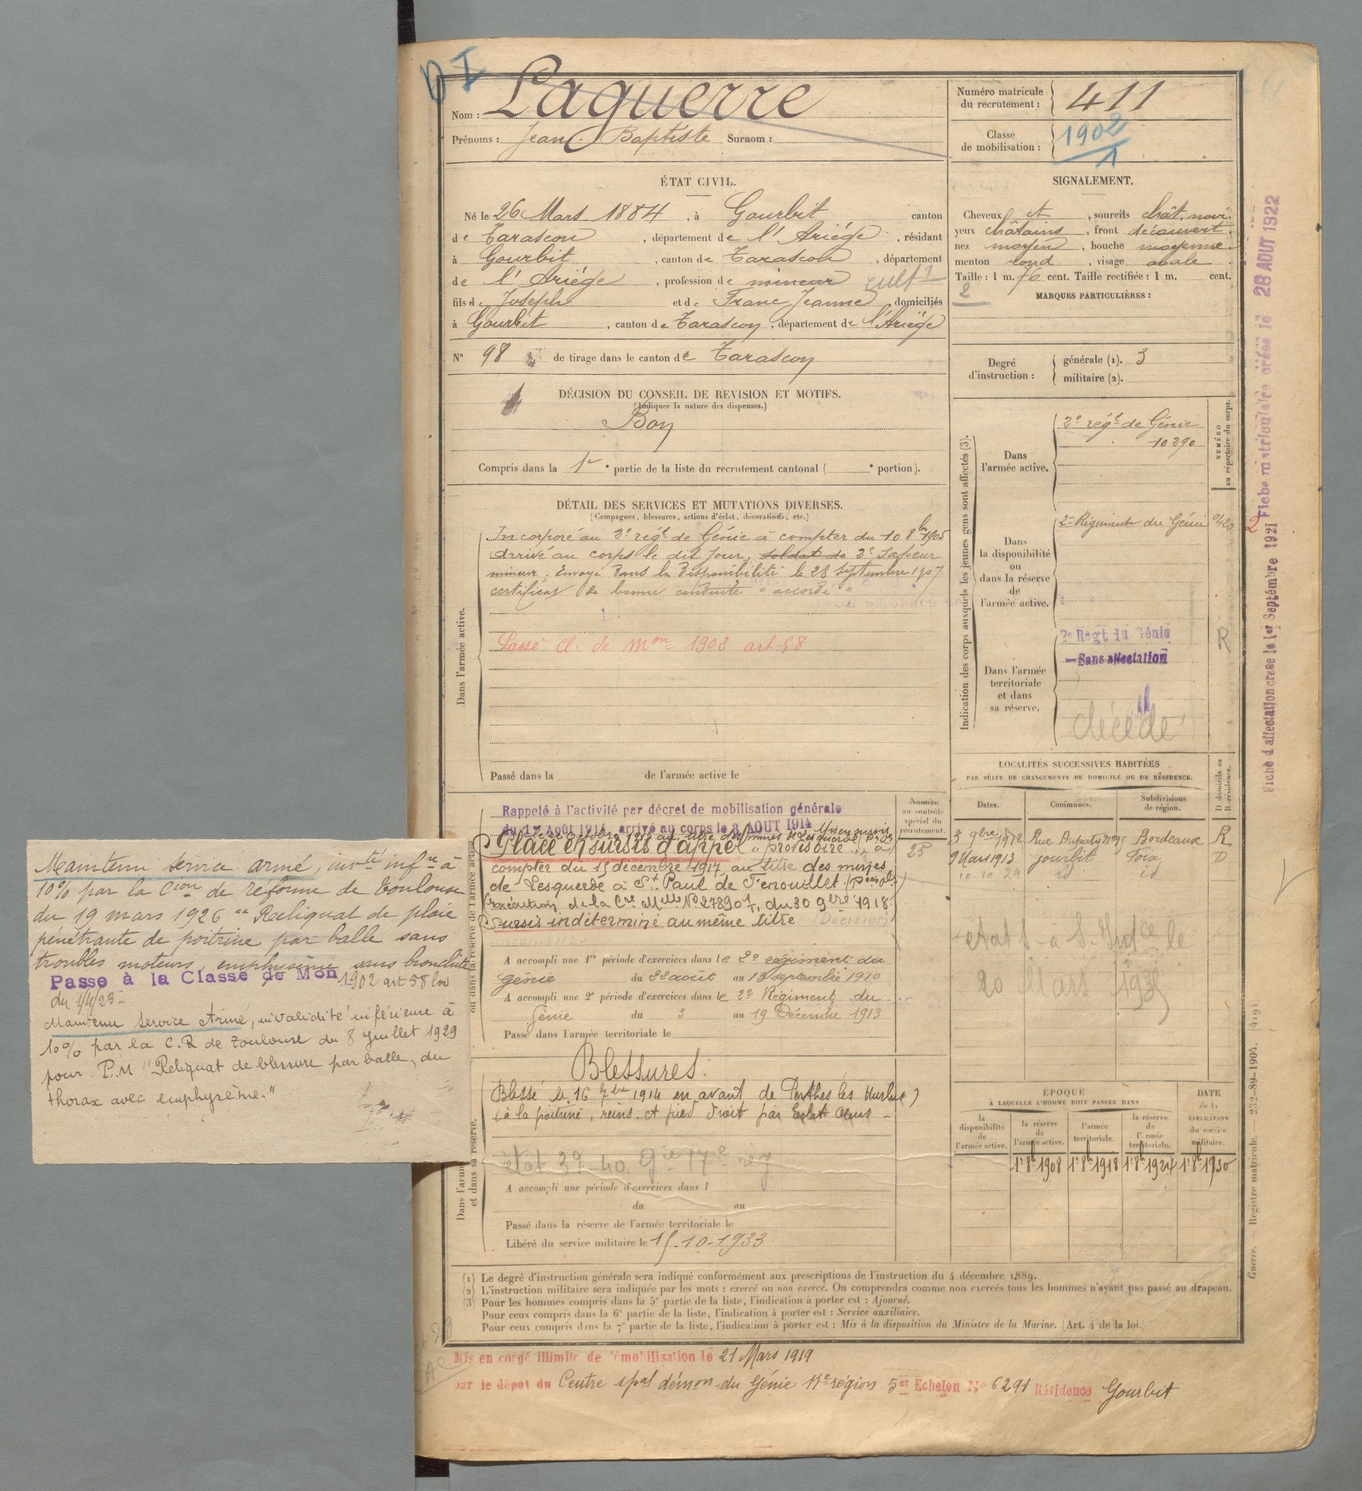 D I
Nom : Laguerre
Prénoms : Jean Baptiste Surnom :
Numéro matricule du recrutement : 411
Classe de mobilisation : 1902
ÉTAT CIVIL.
Né le 26 Mars 1884, à Gourbit canton
de Tarascon, département de l'Ariége, résidant
à Gourbit, canton de Tarascon, département
de l'Ariége, profession de mineur cultr
fils de Joseph et de Franc Jeanne domiciliés
à Gourbit, canton de Tarascon, département de l'Ariége
N° 98 de tirage dans le canton de Tarascon
SIGNALEMENT.
Cheveux et, sourcils chât. noir
yeux châtains, front découvert
nez moyen, bouche moyenne
menton rond, visage ovale
Taille : 1 m. 76 cent. Taille rectifiée : 1 m. cent.
2
MARQUES PARTICULIÈRES :
Degré d'instruction : générale (1). 3
militaire (2).
DÉCISION DU CONSEIL DE REVISION ET MOTIFS.
(Indiquer la nature des dispenses.)
Bon
Compris dans la 1re partie de la liste du recrutement cantonal ( e portion).
DÉTAIL DES SERVICES ET MUTATIONS DIVERSES.
(Campagnes, blessures, actions d'éclat, décorations, etc.)
Dans l'armée active.
Incorporé au 2e régt de Génie à compter du 10 8bre 1905
Arrivé au corps le dit jour, soldat de 2e Sapeur
mineur. Envoyé dans la disponibilité le 28 Septembre 1907
certificat de bonne conduite "accordé"
Passé cl. de mon 1902 art 58
Passé dans la de l'armée active le
Indication des corps auxquels les jeunes gens sont affectés (3).
NUMÉRO au répertoire du corps.
Dans l'armée active.
2e régt de Génie
10290
Dans la disponibilité ou dans la réserve de l'armée active.
2e Régiment du Génie
Dans l'armée territoriale et dans sa réserve.
2e Régt du Génie
Sans affectation
R
décédé
LOCALITÉS SUCCESSIVES HABITÉES
PAR SUITE DE CHANGEMENTS DE DOMICILE OU DE RÉSIDENCE.
D domicile ou R résidence.
Dates. Communes. Subdivisions de région.
3 9bre 1912 Rue Bordeaux R
9 Mars 1913 Gourbit Foix D
10.10.29 id id
20 Mars 1935
Rappelé à l'activité par décret de mobilisation générale
du 1er Août 1914, arrivé au corps le 3 AOUT 1914
Numéro au contrôle spécial du recrutement.
25
Placé en sursis d'appel
compter du 15 décembre 1917, au titre des mines
de Lesquerde à St Paul de Fenouillet
Exécution de la Cre Mlle N° 27890 1/7, du 30 9bre 1918
Sursis indéterminé au même titre
A accompli une 1re période d'exercices dans le 2e régiment du
Génie du 22 août au 13 septembre 1910
A accompli une 2e période d'exercices dans le 2e Régiment du
Génie du 3 au 19 Décembre 1913
Passé dans l'armée territoriale le
Blessures.
Blessé le 16 7bre 1914 en avant de Perthes les Hurlus
(à la poitrine, reins et pied droit par Eclat Obus -
A accompli une période d'exercices dans l
du au
Passé dans la réserve de l'armée territoriale le
Libéré du service militaire le 15.10.1933
ÉPOQUE
À LAQUELLE L'HOMME DOIT PASSER DANS
DATE de la LIBÉRATION du service militaire.
la disponibilité de l'armée active. la réserve de l'armée active. l'armée territoriale. la réserve de l'armée territoriale.
1er 8bre 1908 1er 8bre 1918 1er 8bre 1924 1er 8bre 1930
Maintenu service armé, invté infre à
10% par la Cion de réforme de Toulouse
du 19 mars 1926 "Reliquat de plaie
pénétrante de poitrine par balle sans
troubles moteurs, emphysème sans bronchite
Passe à la Classe de Mon 1902 art 58 loi
du 1/4/23
Maintenu Service Armé, invalidité inférieure à
10% par la C.R de Toulouse du 8 Juillet 1929
pour P.M "Reliquat de blessure par balle, du
thorax avec emphysème."
(1) Le degré d'instruction générale sera indiqué conformément aux prescriptions de l'instruction du 4 décembre 1889.
(2) L'instruction militaire sera indiquée par les mots : exercé ou non exercé. On comprendra comme non exercés tous les hommes n'ayant pas passé au drapeau.
(3) Pour les hommes compris dans la 5e partie de la liste, l'indication à porter est : Ajourné.
Pour ceux compris dans la 6e partie de la liste, l'indication à porter est : Service auxiliaire.
Pour ceux compris dans la 7e partie de la liste, l'indication à porter est : Mis à la disposition du Ministre de la Marine. (Art. 4 de la loi.)
Mis en congé illimité de démobilisation le 21 Mars 1919
par le dépôt du Centre démon du Génie 17e région 5er Echelon N° 6291 Résidence Gourbit
Fiche d'affectation créée le 1er Septembre 1921 Fiche matriculaire créée le 28 AOUT 1922
Guerre. — Registre matricule. — 232-89-1904.